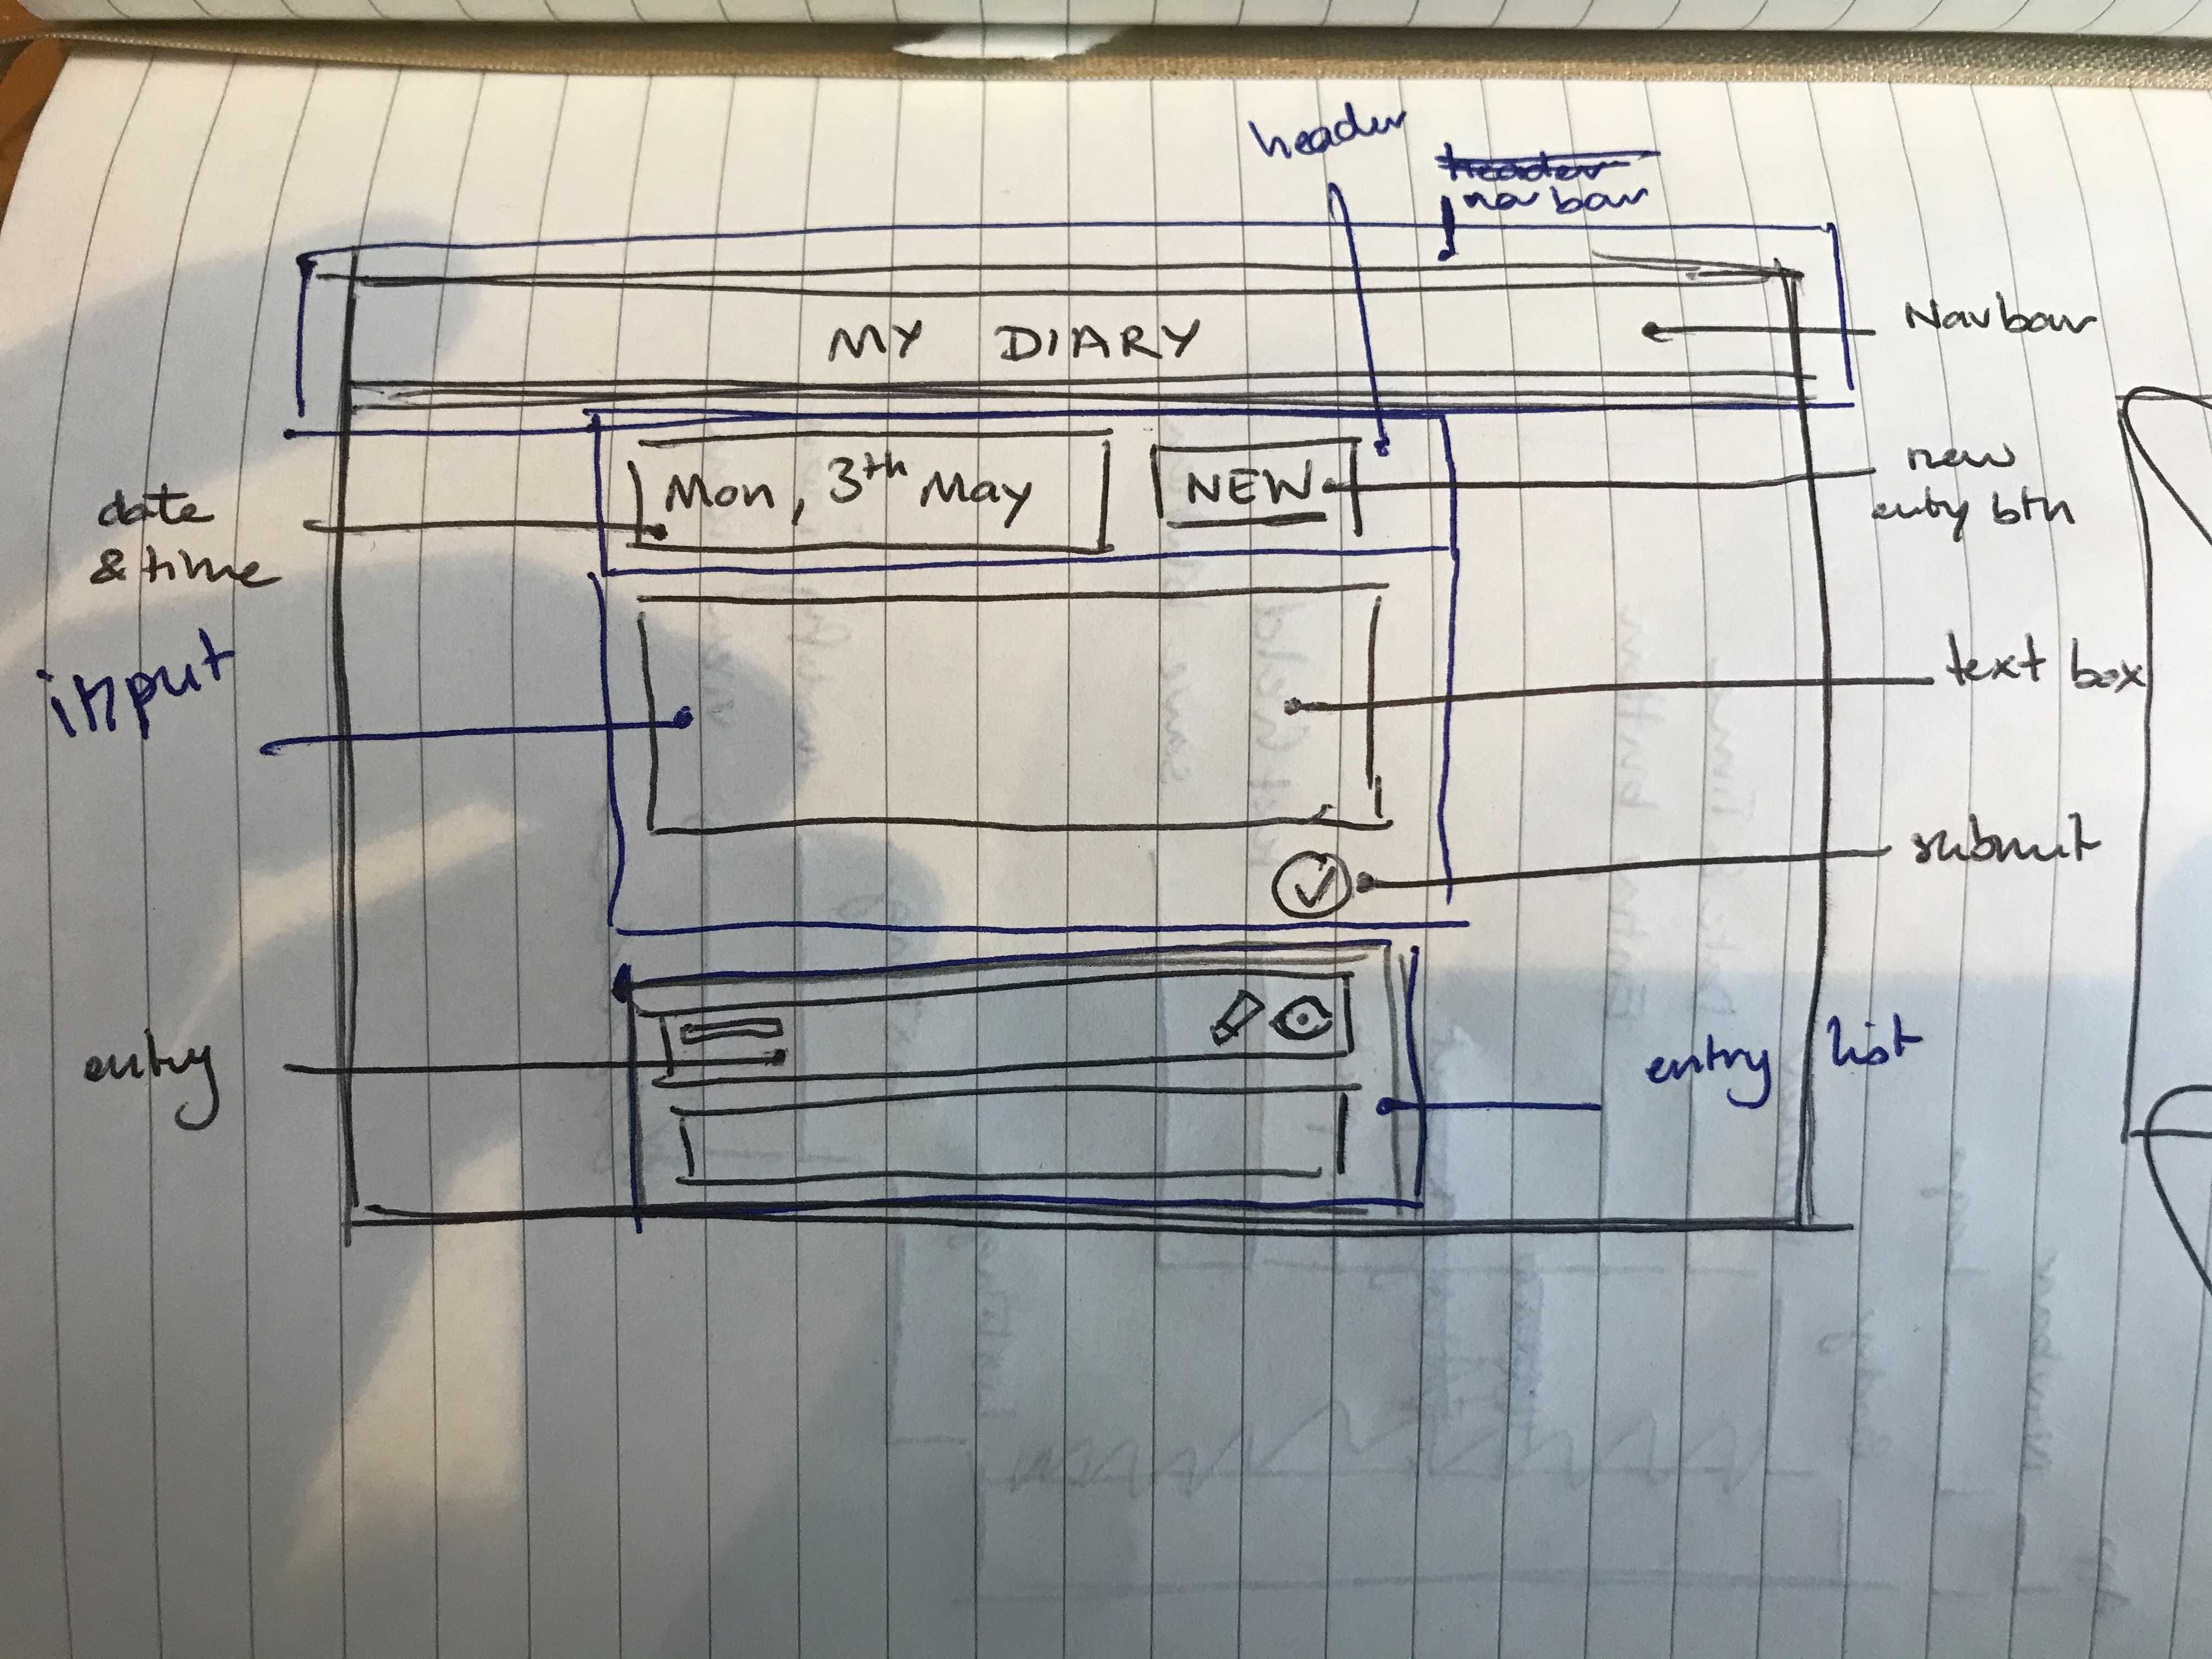 header
header
navbar
MY DIARY
Navbar
date
& time
Mon, 3th May
NEW
new
entry btn
input
text box
submit
entry
entry list